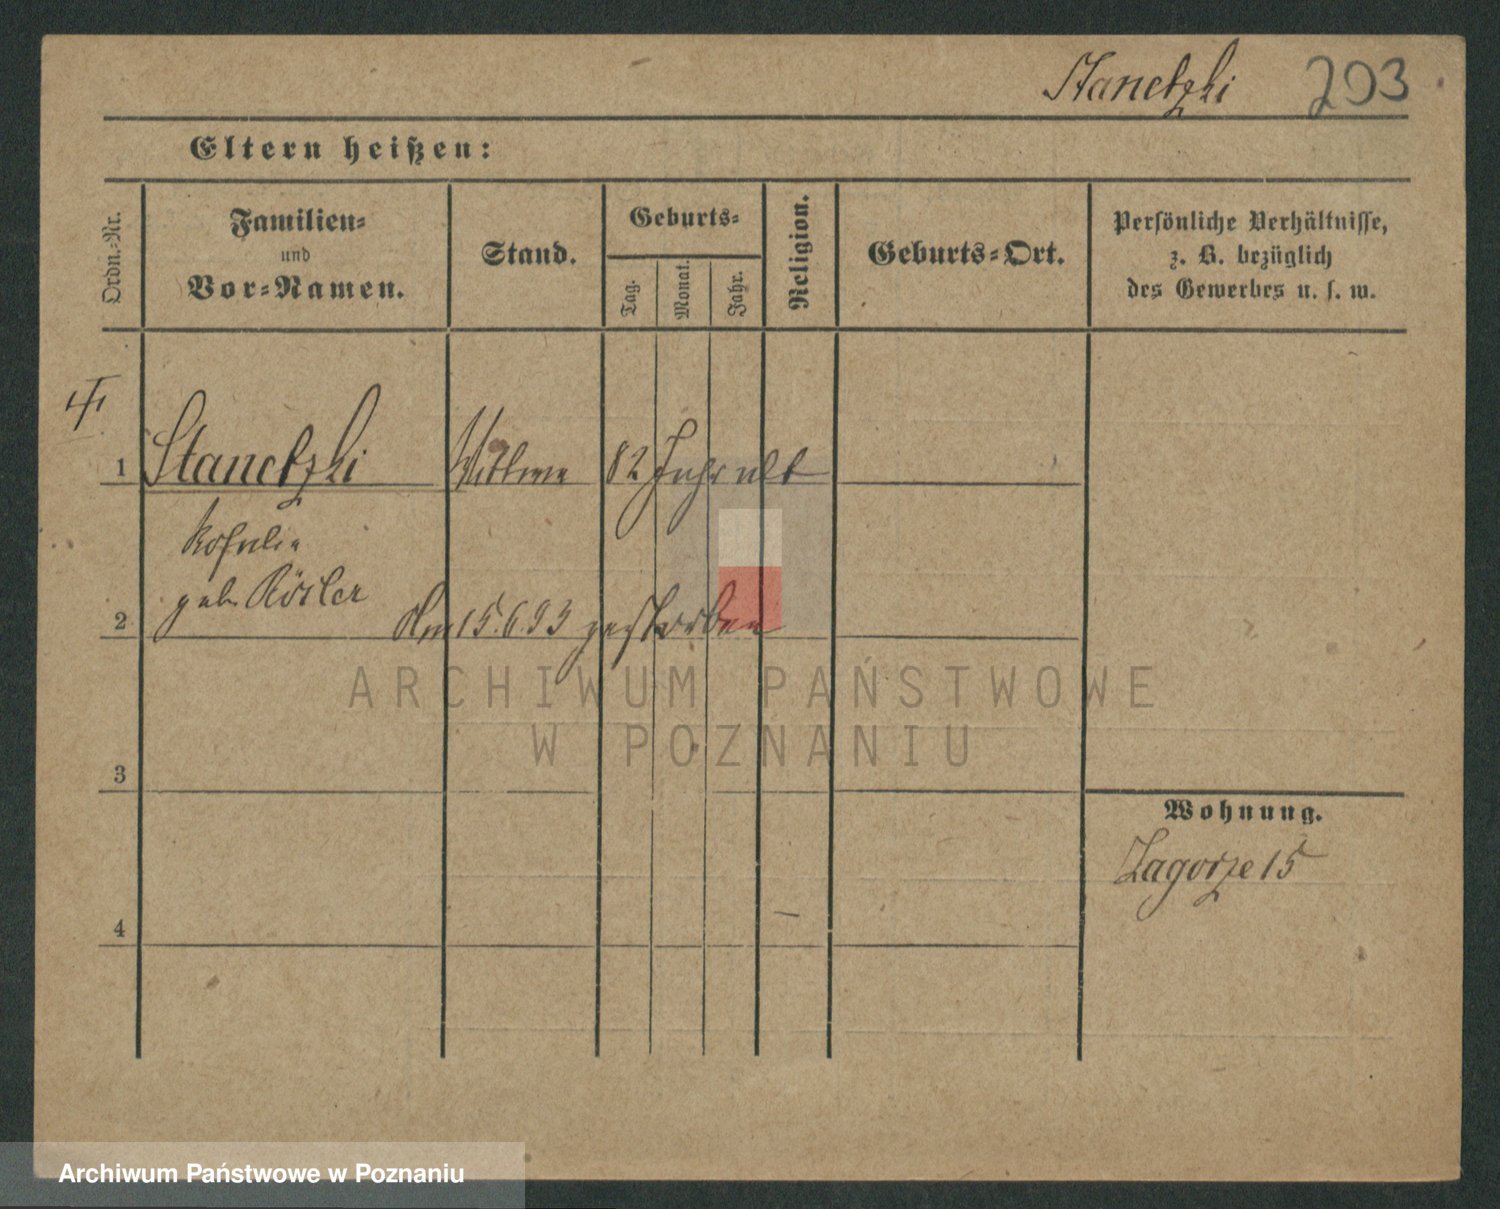 Stanetzki 203
Eltern heißen:
Ordn.-Nr.
Familien-
und
Vor-Namen.
Stand.
Geburts-
Tag.
Monat.
Jahr.
Religion.
Geburts-Ort.
Persönliche Verhältnisse,
z. B. bezüglich
des Gewerbes u. s. w.
1 Stanetzki Wittwe 82 Jahr alt
Rosalie
geb. Rösler
2 Am 15.6.93 gestorben
ARCHIWUM PAŃSTWOWE
W POZNANIU
3
Wohnung.
Zagorze 15
4
Archiwum Państwowe w Poznaniu